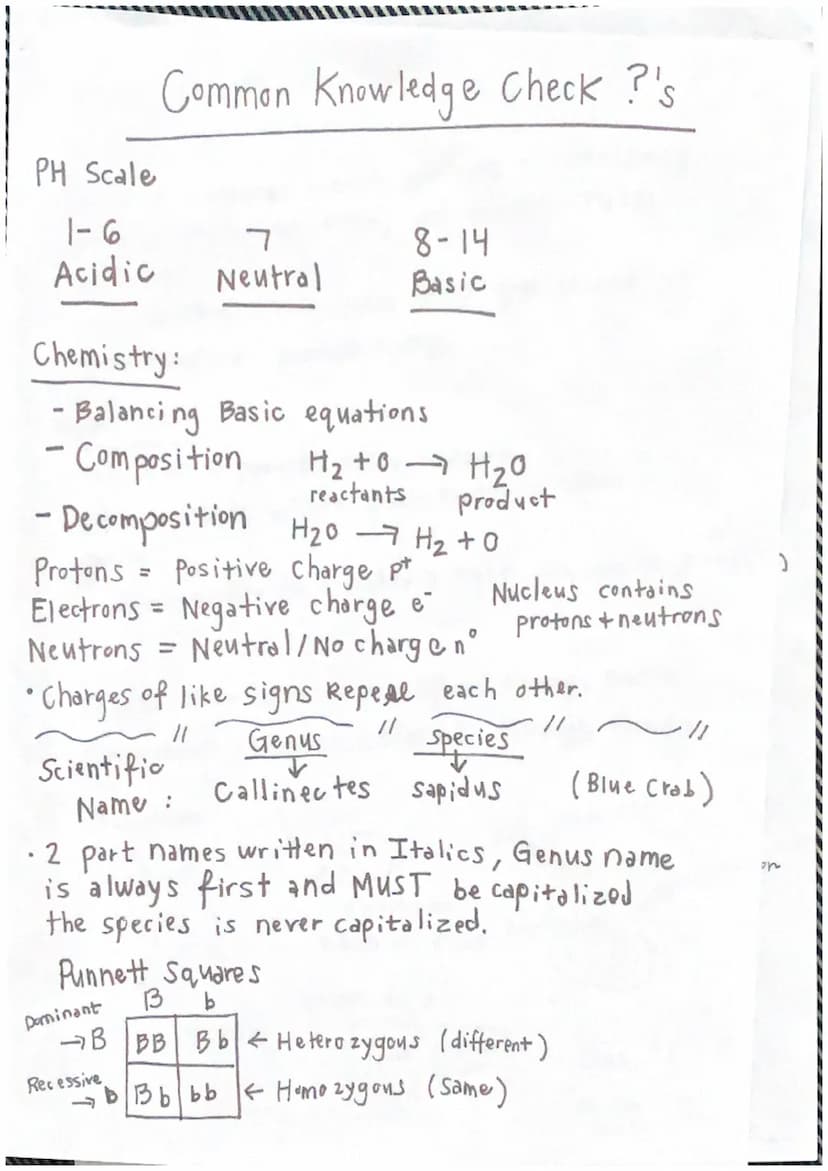 Common Knowledge Check ?'s
PH Scale
1-6 7 8-14
Acidic Neutral Basic
Chemistry:
- Balancing Basic equations
- Composition H₂ + O → H₂O
reactants product
- Decomposition H₂O → H₂ + O
Protons = Positive Charge p⁺
Electrons = Negative charge e⁻ Nucleus contains
Neutrons = Neutral/No charge n° protons + neutrons
• Charges of like signs Repel each other.
Genus Species
↓ ↓
Scientific Callinectes sapidus (Blue Crab)
Name :
• 2 part names written in Italics, Genus name
is always first and MUST be capitalized
the species is never capitalized.
Punnett Squares
B b
Dominant
→ B BB Bb ← Heterozygous (different)
Recessive
→ b Bb bb ← Homozygous (Same)